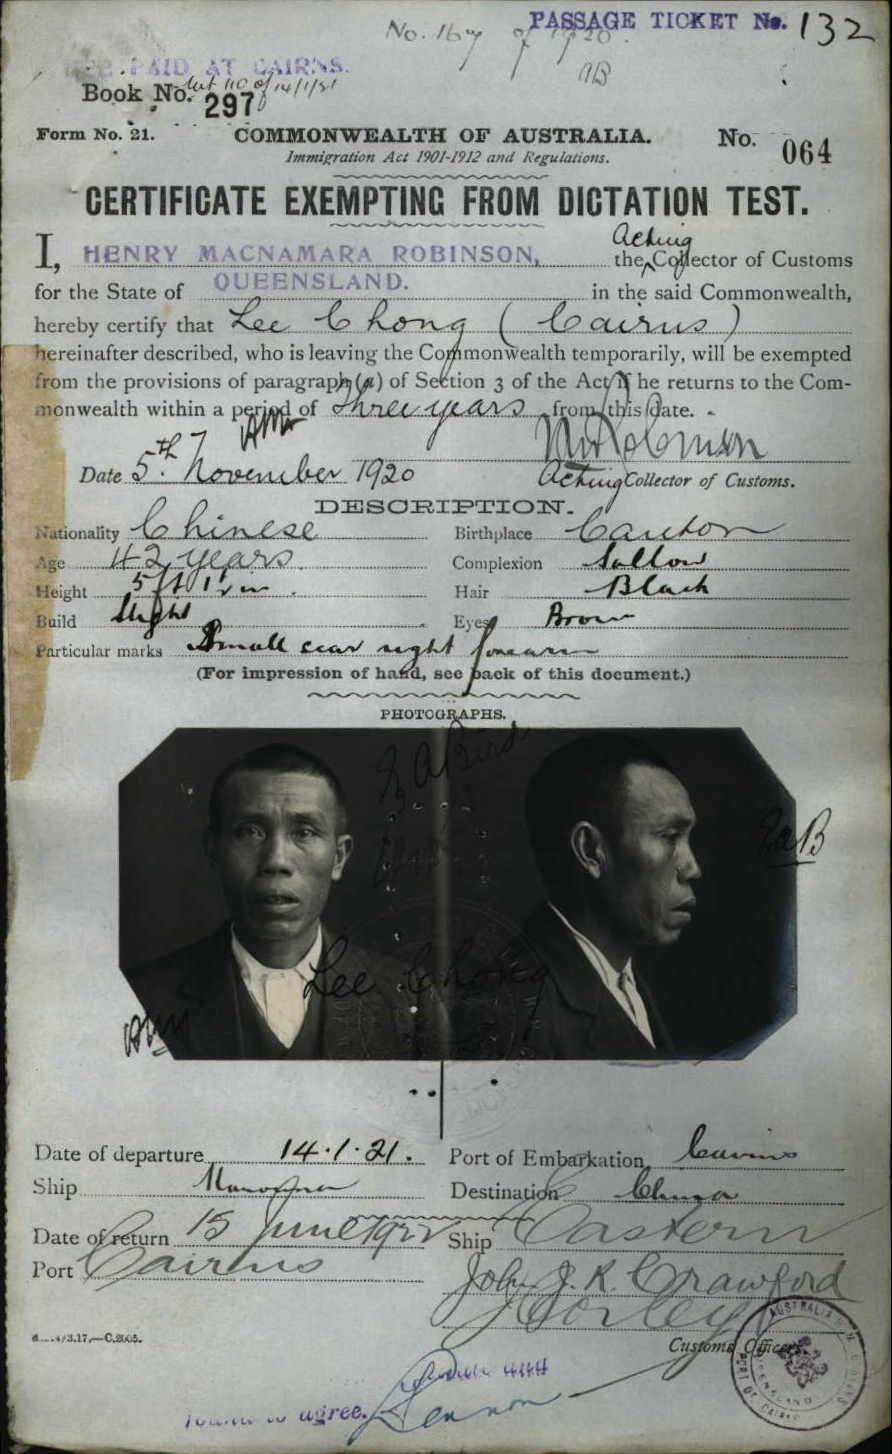 PASSAGE TICKET No. 132
No. 167 of 1920.
PAID AT CAIRNS.
Book No. 297
Form No. 21. COMMONWEALTH OF AUSTRALIA. No. 064
Immigration Act 1901-1912 and Regulations.
CERTIFICATE EXEMPTING FROM DICTATION TEST.
I, HENRY MACNAMARA ROBINSON, the Acting Collector of Customs
for the State of QUEENSLAND. in the said Commonwealth,
hereby certify that Lee Chong (Cairns)
hereinafter described, who is leaving the Commonwealth temporarily, will be exempted
from the provisions of paragraph (a) of Section 3 of the Act if he returns to the Com-
monwealth within a period of three years from this date.
Date 5th November 1920 Acting Collector of Customs.
DESCRIPTION.
Nationality Chinese Birthplace Canton
Age 42 years. Complexion Sallow
Height 5 ft 1½ in. Hair Black
Build Slight Eyes Brown
Particular marks Small scar right forearm
(For impression of hand, see back of this document.)
PHOTOGRAPHS.
Lee Chong
Date of departure 14.1.21. Port of Embarkation Cairns
Ship Destination China
Date of return 15 June 1922 Ship Eastern
Port Cairns John J. R. Crawford
Customs Officers.
to agree.